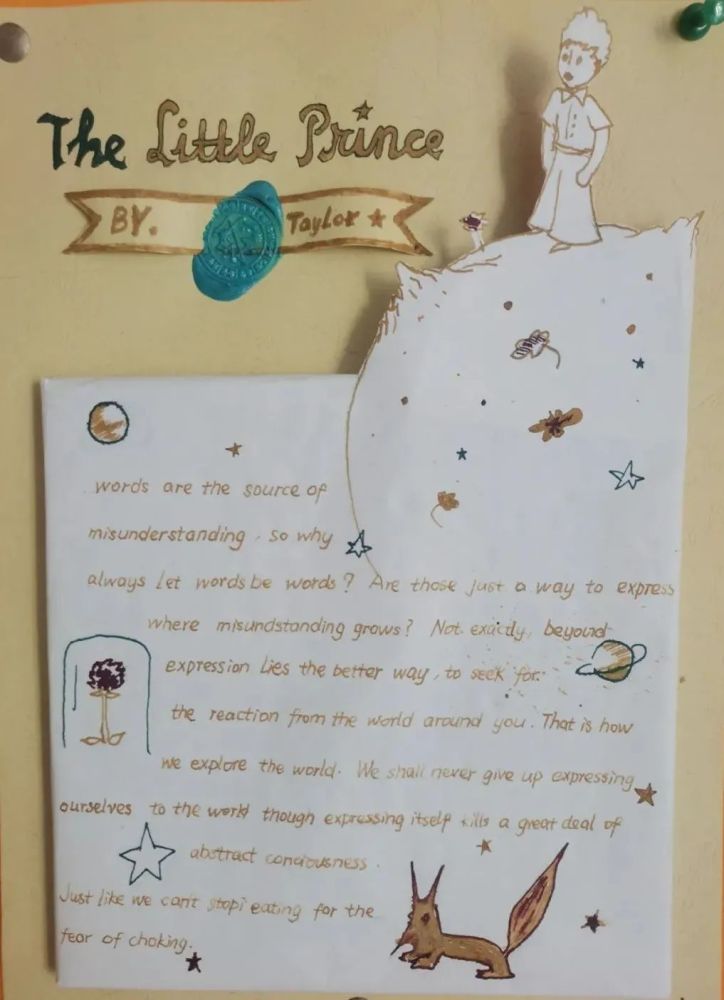 The Little Prince
BY. Taylor
words are the source of
misunderstanding, so why
always let words be words? Are those just a way to express
where misundstanding grows? Not exactly, beyound
expression lies the better way, to seek for
the reaction from the world around you. That is how
we explore the world. We shall never give up expressing
ourselves to the world though expressing itself kills a great deal of
abstract conciousness.
Just like we can't stop eating for the
fear of choking.